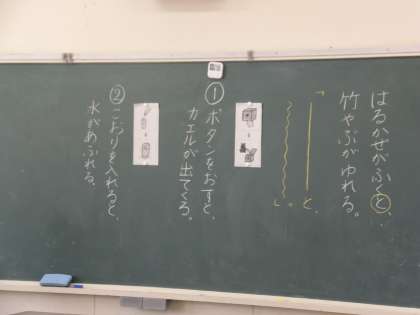 はるかぜがふくと、
竹やぶがゆれる。
「
と、
し。
①ボタンをおすと、
カエルが出てくる。
②こおりを入れると、
水があふれる。